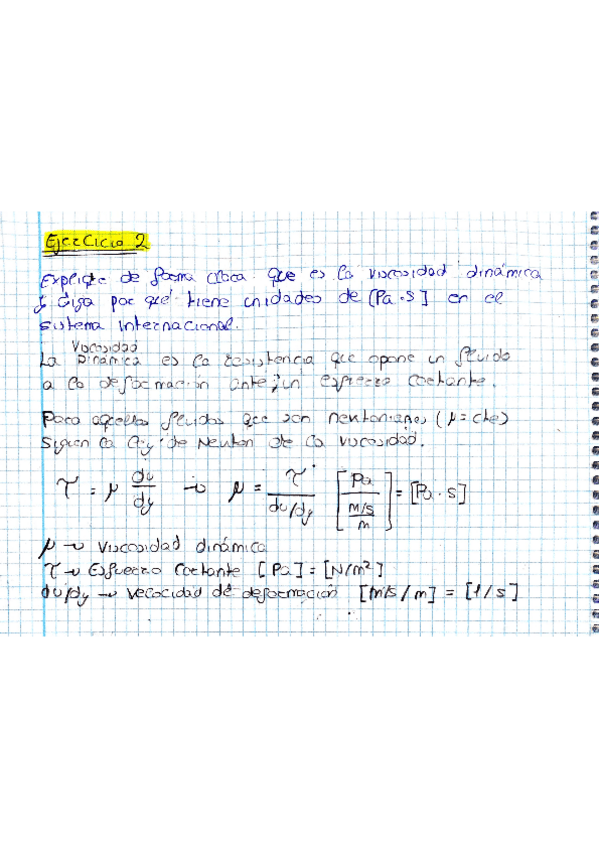 Ejercicio 2
Explique de forma clara que es la viscosidad dinámica
y diga por qué tiene unidades de [Pa·s] en el
sistema internacional.
Viscosidad
La Dinámica es la resistencia que opone un fluido
a la deformación ante un esfuerzo cortante.
Para aquellos fluidos que son newtonianos (μ = cte)
Siguen la ley de Newton de la viscosidad.
τ = μ du/dy → μ = τ / du/dy [Pa / m/s / m] = [Pa·s]
μ → Viscosidad dinámica
τ → Esfuerzo cortante [Pa] = [N/m²]
du/dy → velocidad de deformación [m/s / m] = [1/s]